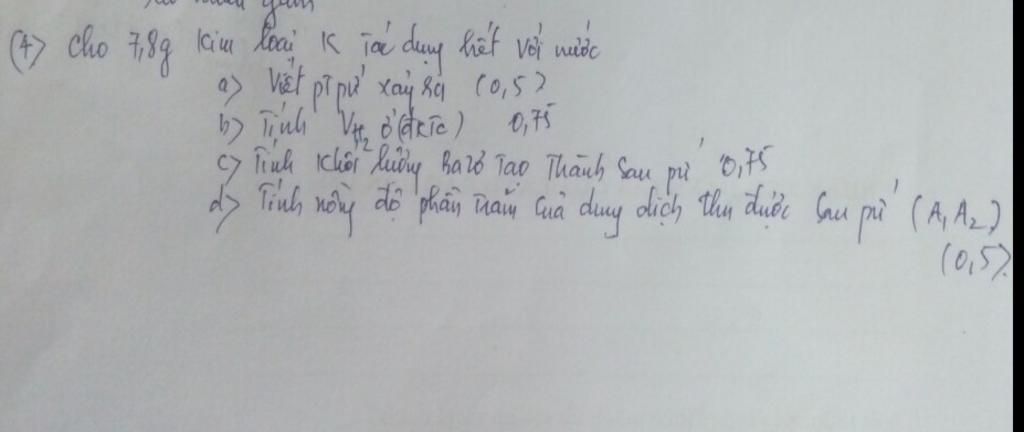 (4) Cho 7,8g kim loại K Tác dụng hết với nước
a) Viết ptpứ xảy ra (0,5)
b) Tính VH2 ở (đktc) 0,75
c) Tính khối lượng Bazơ Tạo Thành sau pứ 0,75
d) Tính nồng độ phần trăm của dung dịch thu được sau pứ (A1A2)
(0,5).